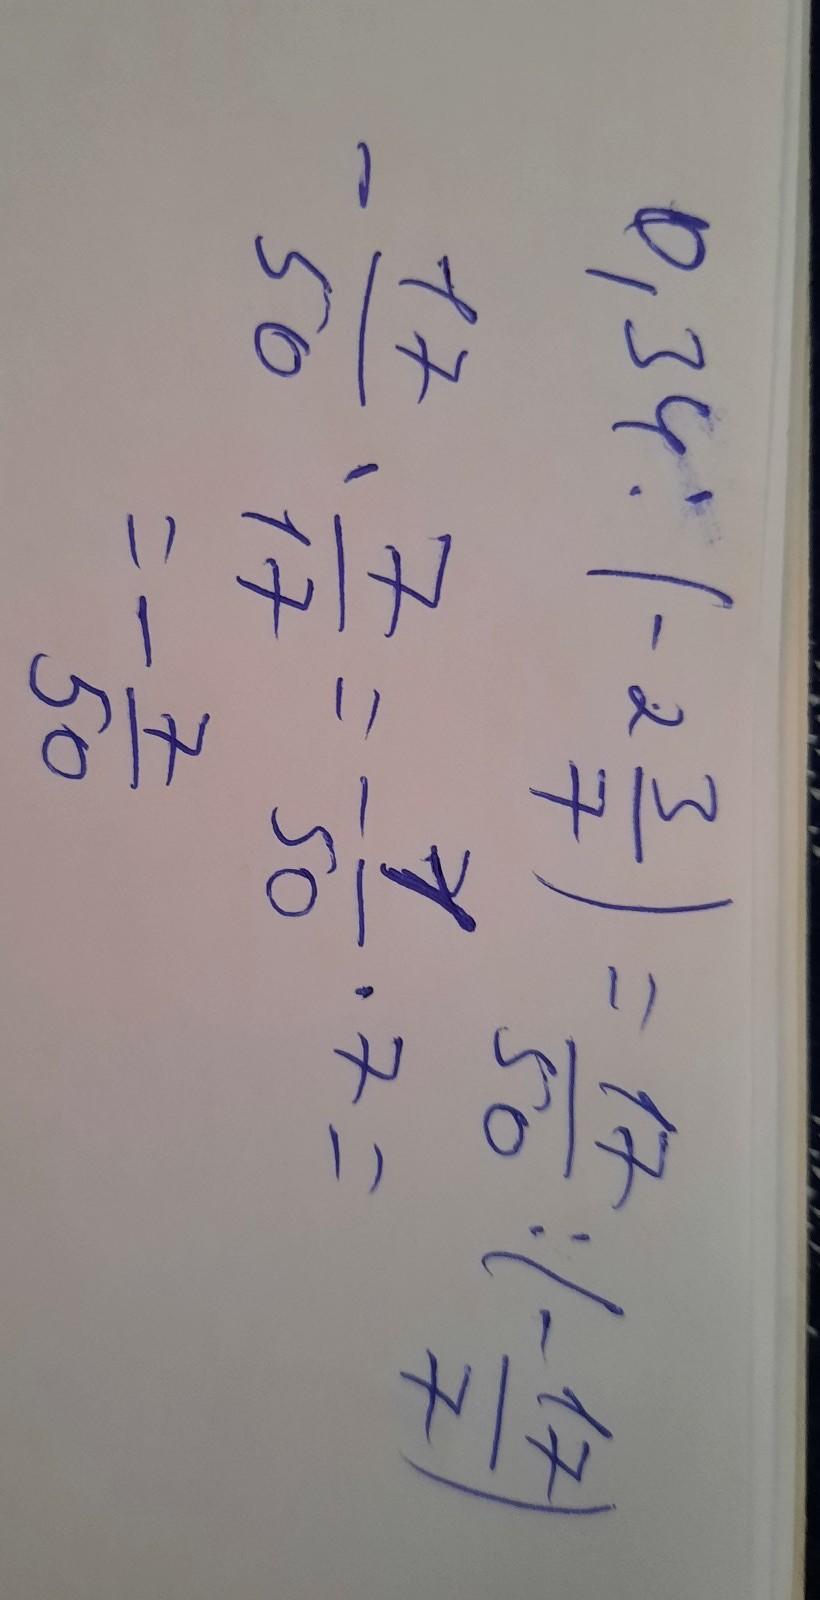 0,34 : (-2 3/7) = 17/50 : (-17/7)
- 17/50 · 7/17 = - 1/50 · 7 =
= - 7/50